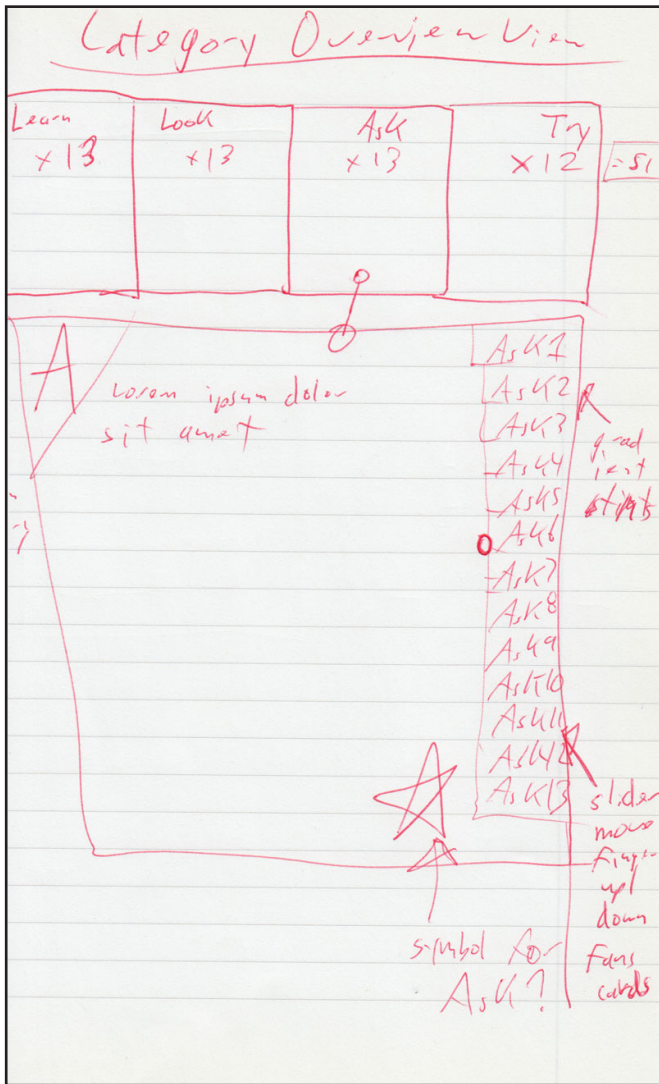 Category Overview View
Learn
x13
Look
x13
Ask
x13
Try
x12
=51
A
Lorem ipsum dolor
sit amet
Ask1
Ask2
Ask3
Ask4
Ask5
Ask6
Ask7
Ask8
Ask9
Ask10
Ask11
Ask12
Ask13
slider
move
finger
up/
down
Fans
cards
symbol for
Ask?